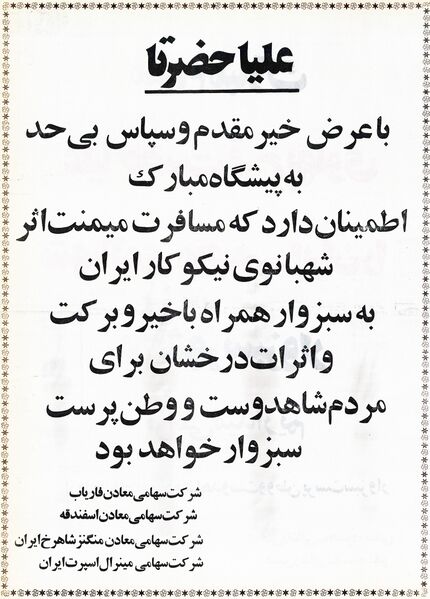 علیاحضرتا
با عرض خیر مقدم و سپاس بی حد
به پیشگاه مبارک
اطمینان دارد که مسافرت میمنت اثر
شهبانوی نیکو کار ایران
به سبزوار همراه با خیر و برکت
و اثرات درخشان برای
مردم شاهدوست و وطن پرست
سبزوار خواهد بود
شرکت سهامی معادن فاریاب
شرکت سهامی معادن اسفندقه
شرکت سهامی معادن منگنز شاهرخ ایران
شرکت سهامی مینرال اسپرت ایران